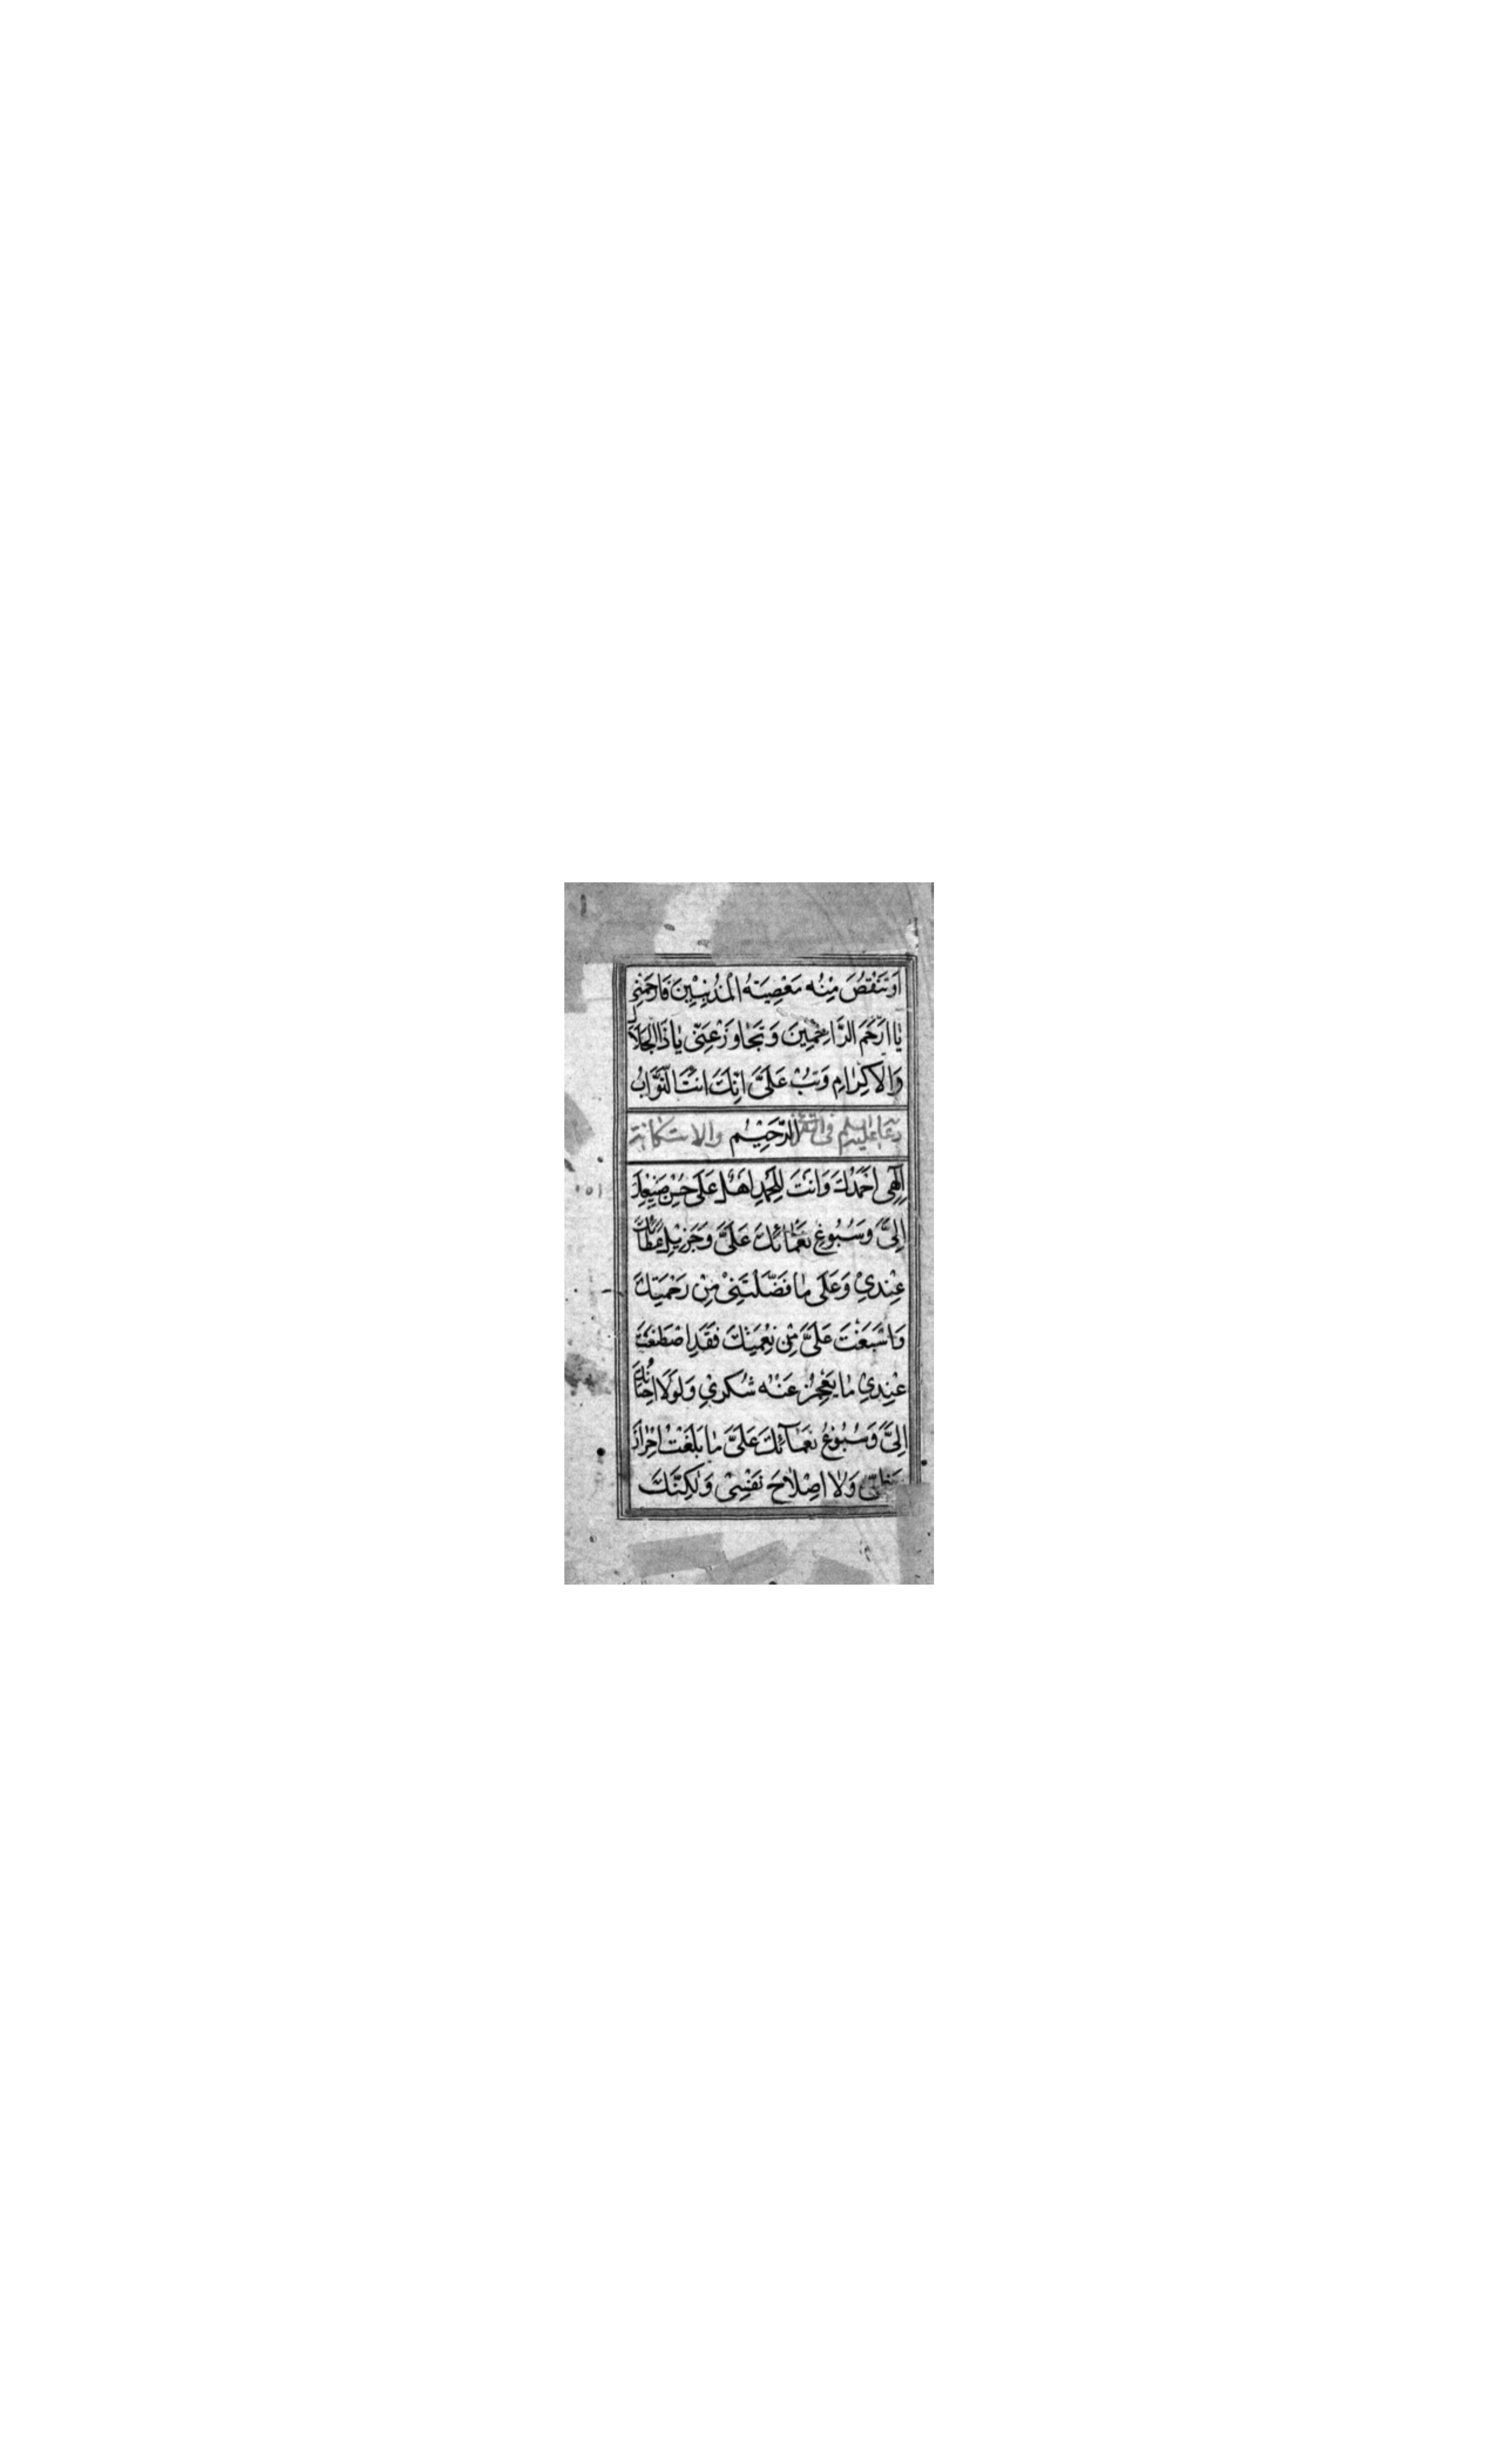 اَوْتَنْقُصَ مِنْهُ مَعْصِيَةُ الْمُذْنِبِيْنَ فَارْحَمْنِيْ
يٰا اَرْحَمَ الرَّاحِمِيْنَ وَتَجٰاوَزْ عَنّىٖ يٰاذَا الْجَلاٰلِ
وَالْاِكْرٰامِ وَتُبْ عَلَىَّ اِنَّكَ اَنْتَ التَّوَّابُ
دعاءعليه السلم فى التضرع الرَّحِيْمُ والاستكانة
اِلٰهىٖ اَحْمَدُكَ وَاَنْتَ لِلْحَمْدِ اَهْلٌ عَلىٰ حُسْنِ صَنِيْعِكَ
اِلَىَّ وَسُبُوْغِ نَعْمٰائِكَ عَلَىَّ وَجَزِيْلِ عَطٰائِكَ
عِنْدِيْ وَعَلىٰ مٰا فَضَّلْتَنِىْ مِنْ رَحْمَتِكَ
وَاَسْبَغْتَ عَلَىَّ مِنْ نِعْمَتِكَ فَقَدِ اصْطَنَعْتَ
عِنْدِيْ مٰا يَعْجِزُ عَنْهُ شُكْرِيْ وَلَوْلاٰ اِحْسٰانُكَ
اِلَىَّ وَسُبُوْغُ نَعْمٰآئِكَ عَلَىَّ مٰا بَلَغْتُ اِحْرٰازَ
حَظّىٖ وَلاٰ اِصْلاٰحَ نَفْسِىْ وَلٰكِنَّكَ
١٥١